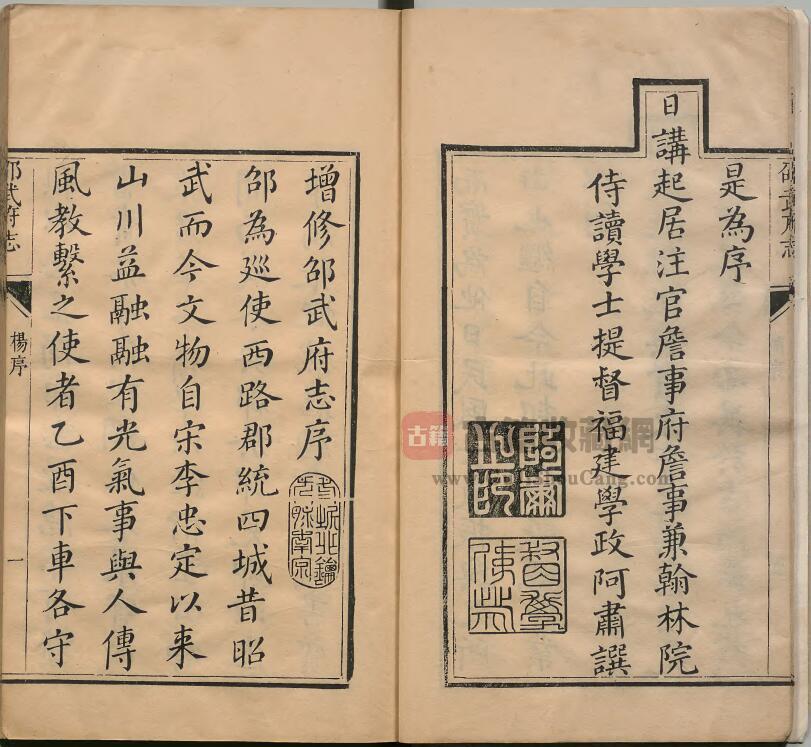 邵武府志
是為序
日講起居注官詹事府詹事兼翰林院
侍讀學士提督福建學政阿肅譔
阿肅
之印
增修邵武府志序
邵為廵使西路郡統四城昔昭
武而今文物自宋李忠定以来
山川益融融有光氣事與人傳
風教繫之使者乙酉下車各守
邵武府志
楊序
一
古籍
古籍收藏網
www.GujiShouCang.com